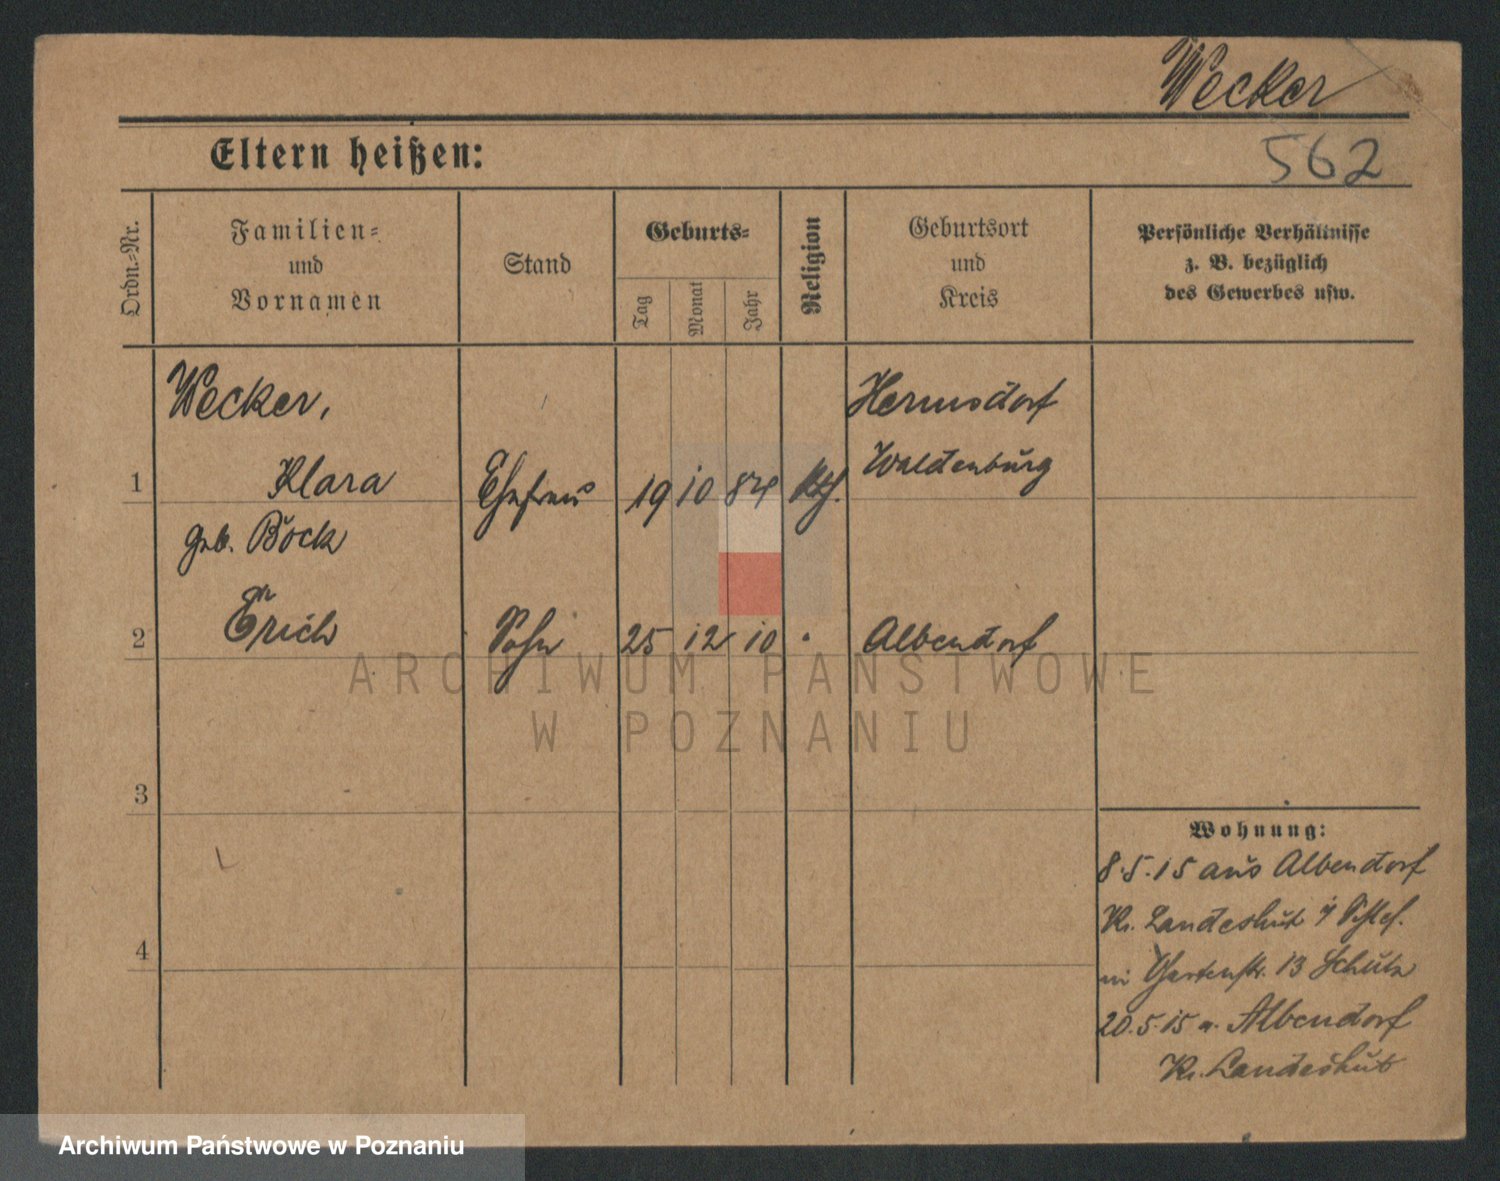 Wecker
Eltern heißen:
562
Ordn.-Nr.
Familien-
und
Vornamen
Stand
Geburts-
Tag
Monat
Jahr
Religion
Geburtsort
und
Kreis
Persönliche Verhältnisse
z. B. bezüglich
des Gewerbes usw.
Wecker,
Hermsdorf
Waldenburg
1 Klara Ehefrau 19 10 84 Kth.
geb. Bock
2 Erich Sohn 25 12 10 " Albendorf
ARCHIWUM PAŃSTWOWE
W POZNANIU
3
4
Wohnung:
8.5.15 aus Albendorf
Kr. Landeshut i/ Schles.
in Gartenstr. 13 Schulz
20.5.15 n. Albendorf
Kr. Landeshut
Archiwum Państwowe w Poznaniu